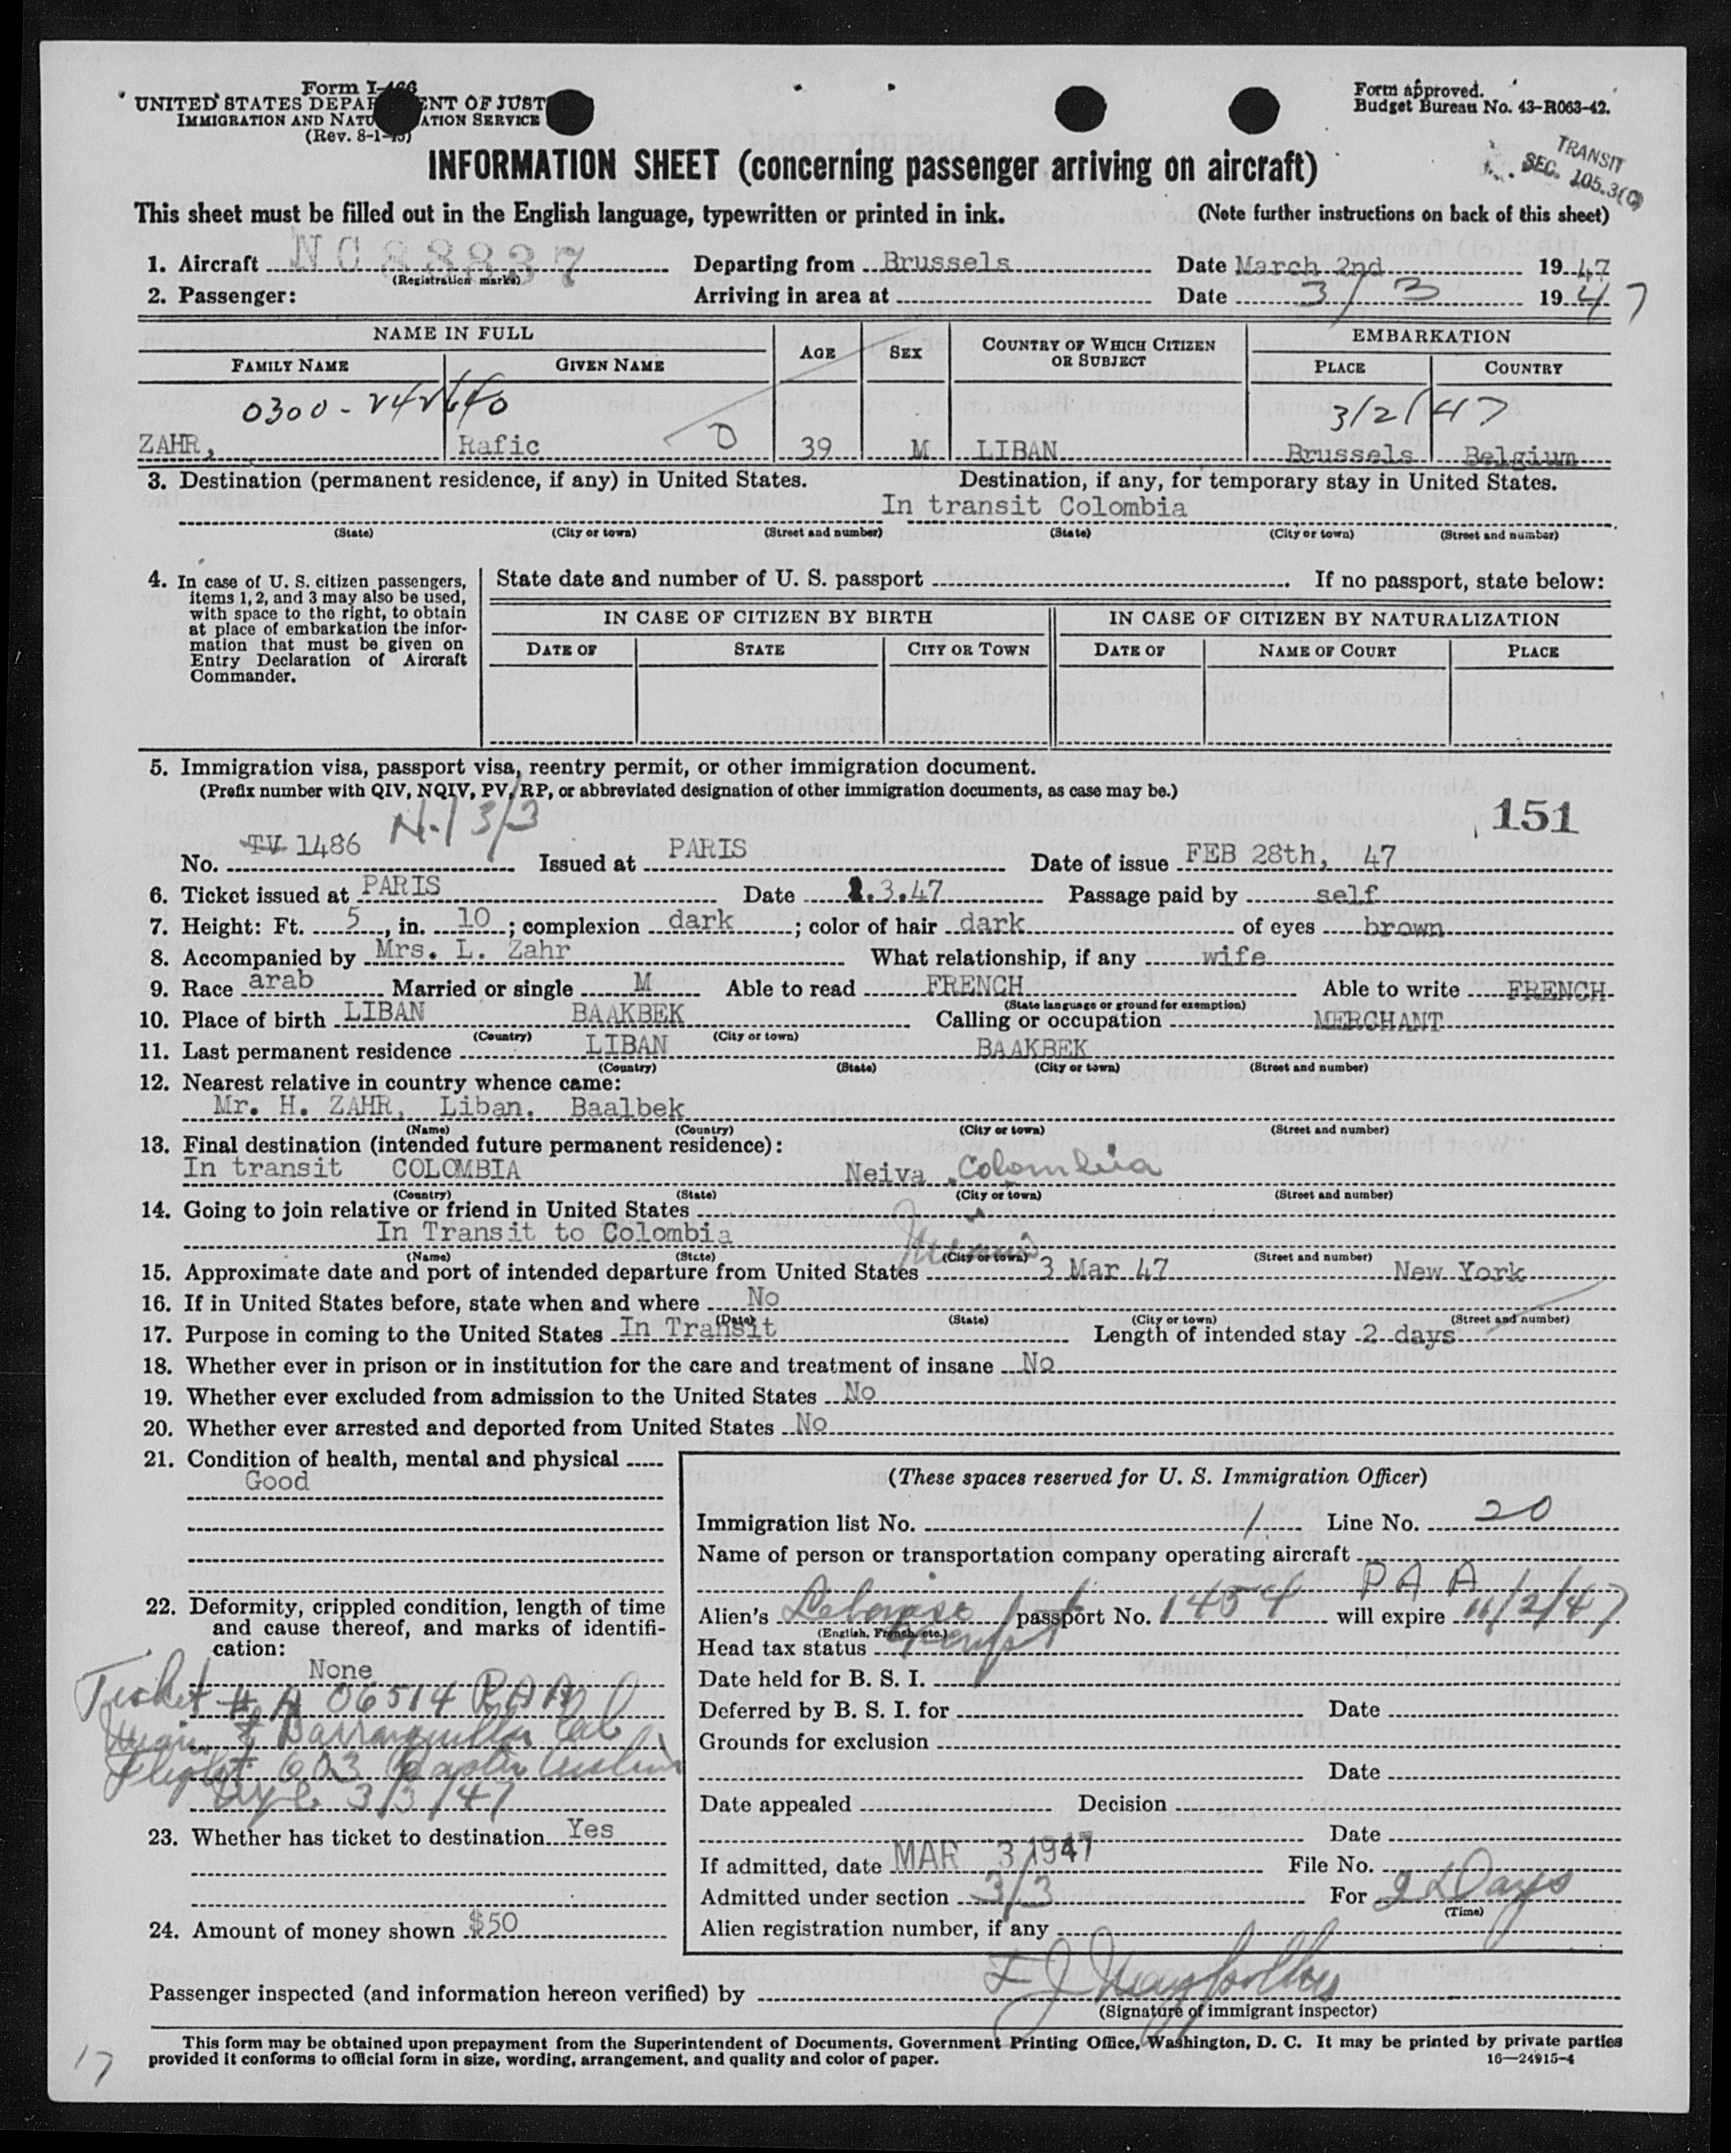 Form I-466
UNITED STATES DEPARTMENT OF JUSTICE
IMMIGRATION AND NATURALIZATION SERVICE
(Rev. 8-1-45)
Form approved.
Budget Bureau No. 43-R063-42.
TRANSIT
SEC. 105.3(C)
INFORMATION SHEET (concerning passenger arriving on aircraft)
This sheet must be filled out in the English language, typewritten or printed in ink. (Note further instructions on back of this sheet)
1. Aircraft NC88837 Departing from Brussels Date March 2nd 1947
(Registration marks)
2. Passenger: Arriving in area at Date 3/3 1947
NAME IN FULL AGE SEX COUNTRY OF WHICH CITIZEN OR SUBJECT EMBARKATION
FAMILY NAME GIVEN NAME PLACE COUNTRY
0300-242640 3/2/47
ZAHR, Rafic 0 39 M LIBAN Brussels Belgium
3. Destination (permanent residence, if any) in United States. Destination, if any, for temporary stay in United States.
In transit Colombia
(State) (City or town) (Street and number) (State) (City or town) (Street and number)
4. In case of U. S. citizen passengers, items 1, 2, and 3 may also be used, with space to the right, to obtain at place of embarkation the information that must be given on Entry Declaration of Aircraft Commander.
State date and number of U. S. passport . If no passport, state below:
IN CASE OF CITIZEN BY BIRTH IN CASE OF CITIZEN BY NATURALIZATION
DATE OF STATE CITY OR TOWN DATE OF NAME OF COURT PLACE
5. Immigration visa, passport visa, reentry permit, or other immigration document.
(Prefix number with QIV, NQIV, PV, RP, or abbreviated designation of other immigration documents, as case may be.)
151
No. TV 1486 Issued at PARIS Date of issue FEB 28th, 47
6. Ticket issued at PARIS Date 1.3.47 Passage paid by self
7. Height: Ft. 5, in. 10; complexion dark; color of hair dark of eyes brown
8. Accompanied by Mrs. L. Zahr What relationship, if any wife
9. Race arab Married or single M Able to read FRENCH Able to write FRENCH
(State language or ground for exemption)
10. Place of birth LIBAN BAAKBEK Calling or occupation MERCHANT
(Country) (City or town)
11. Last permanent residence LIBAN BAAKBEK
(Country) (State) (City or town) (Street and number)
12. Nearest relative in country whence came:
Mr. H. ZAHR, Liban. Baalbek
(Name) (Country) (City or town) (Street and number)
13. Final destination (intended future permanent residence):
In transit COLOMBIA Neiva Colombia
(Country) (State) (City or town) (Street and number)
14. Going to join relative or friend in United States
In Transit to Colombia Miami
(Name) (State) (City or town) (Street and number)
15. Approximate date and port of intended departure from United States 3 Mar 47 New York
16. If in United States before, state when and where No
(Date) (State) (City or town) (Street and number)
17. Purpose in coming to the United States In Transit Length of intended stay 2 days
18. Whether ever in prison or in institution for the care and treatment of insane No
19. Whether ever excluded from admission to the United States No
20. Whether ever arrested and deported from United States No
21. Condition of health, mental and physical
Good
22. Deformity, crippled condition, length of time and cause thereof, and marks of identification:
None
Ticket # A 06514 PAA
Miami to Barranquilla Col
Flight 603 Eastern Airlines
3/3/47
23. Whether has ticket to destination Yes
24. Amount of money shown $50
(These spaces reserved for U. S. Immigration Officer)
Immigration list No. 1 Line No. 20
Name of person or transportation company operating aircraft
PAA
Alien's Lebanese passport No. 1454 will expire 11/2/47
(English, French, etc.)
Head tax status Exempt
Date held for B. S. I.
Deferred by B. S. I. for Date
Grounds for exclusion
Date
Date appealed Decision
Date
If admitted, date MAR 3 1947 File No.
Admitted under section 3/3 For 2 Days
(Time)
Alien registration number, if any
Passenger inspected (and information hereon verified) by
(Signature of immigrant inspector)
This form may be obtained upon prepayment from the Superintendent of Documents, Government Printing Office, Washington, D. C. It may be printed by private parties
provided it conforms to official form in size, wording, arrangement, and quality and color of paper. 16—24915-4
17